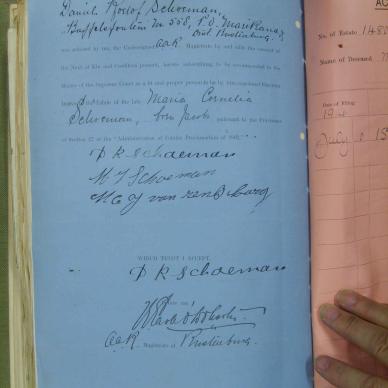 Daniel Roelof Schoeman,
Buffelsfontein No 558, P.O. Marikana,
Dist Rustenburg
was advised by me, the Undersigned Ass R Magistrate by and with the consent of
the Next of Kin and Creditors present, hereto subscribing, to be recommended to the
Master of the Supreme Court as a fit and proper person to be by him
Estate of the late Maria Cornelia
Schoeman, born Jacobs pursuant to the Provisions
of Section 27 of the "Administration of Estates Proclamation of 1902,"
D R Schoeman
M J Schoeman
M C J van den Burg
WHICH TRUST I ACCEPT,
D R Schoeman
Before me,
Ass R Magistrate of Rustenburg.
AC
No. of Estate 1480
Name of Deceased
Date of Filing
191
July